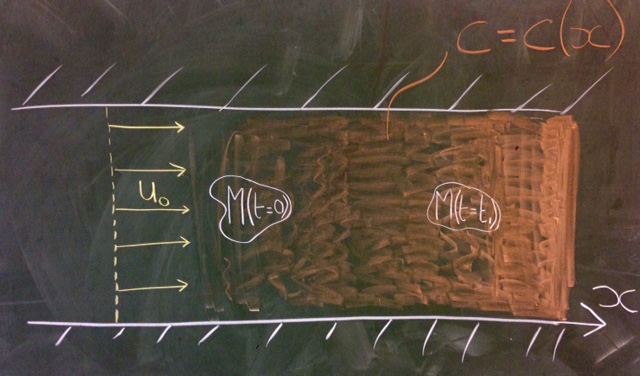 C = C(x)
u₀
M(t=0)
M(t=t₁)
x